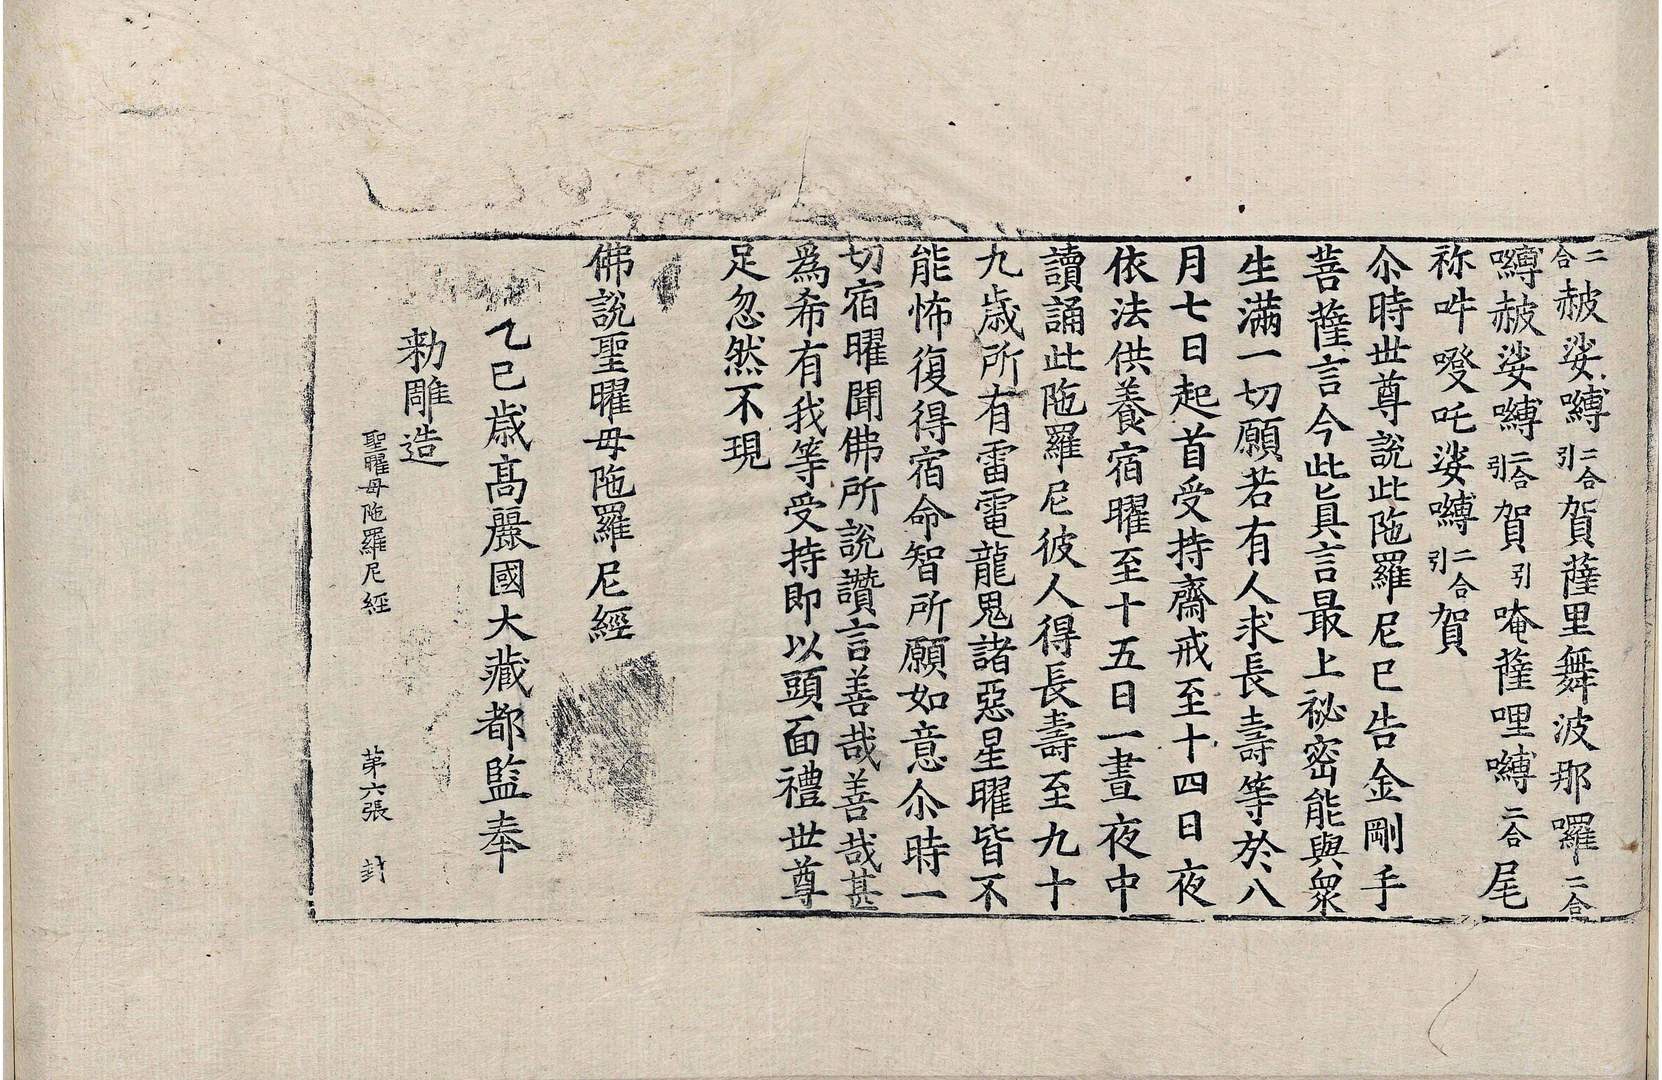 二合赦娑嚩二合引賀薩里舞波那囉二合
嚩赦娑嚩二合引賀引唵薩哩嚩二合尾
祢吽發吒娑嚩二合引賀
尒時世尊說此陁羅尼已告金剛手
菩薩言今此眞言最上祕密能與衆
生滿一切願若有人求長壽等於八
月七日起首受持齋戒至十四日夜
依法供養宿曜至十五日一晝夜中
讀誦此陁羅尼彼人得長壽至九十
九歲所有雷電龍鬼諸惡星曜皆不
能怖復得宿命智所願如意尒時一
切宿曜聞佛所說讚言善哉善哉甚
爲希有我等受持即以頭面禮世尊
足忽然不現
佛說聖曜母陁羅尼經
乙巳歲高麗國大藏都監奉
勑雕造
聖曜母陁羅尼經 第六張 封